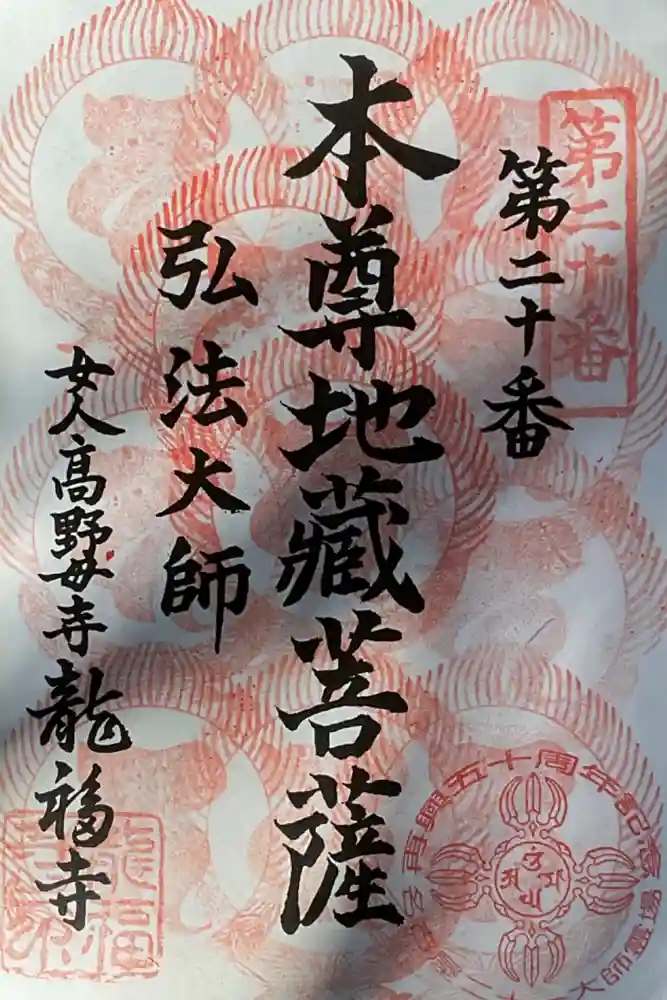 第二十番
第二十番
本尊地藏菩薩
弘法大師
女人高野母寺龍福寺
再興五十周年記念
大師霊場